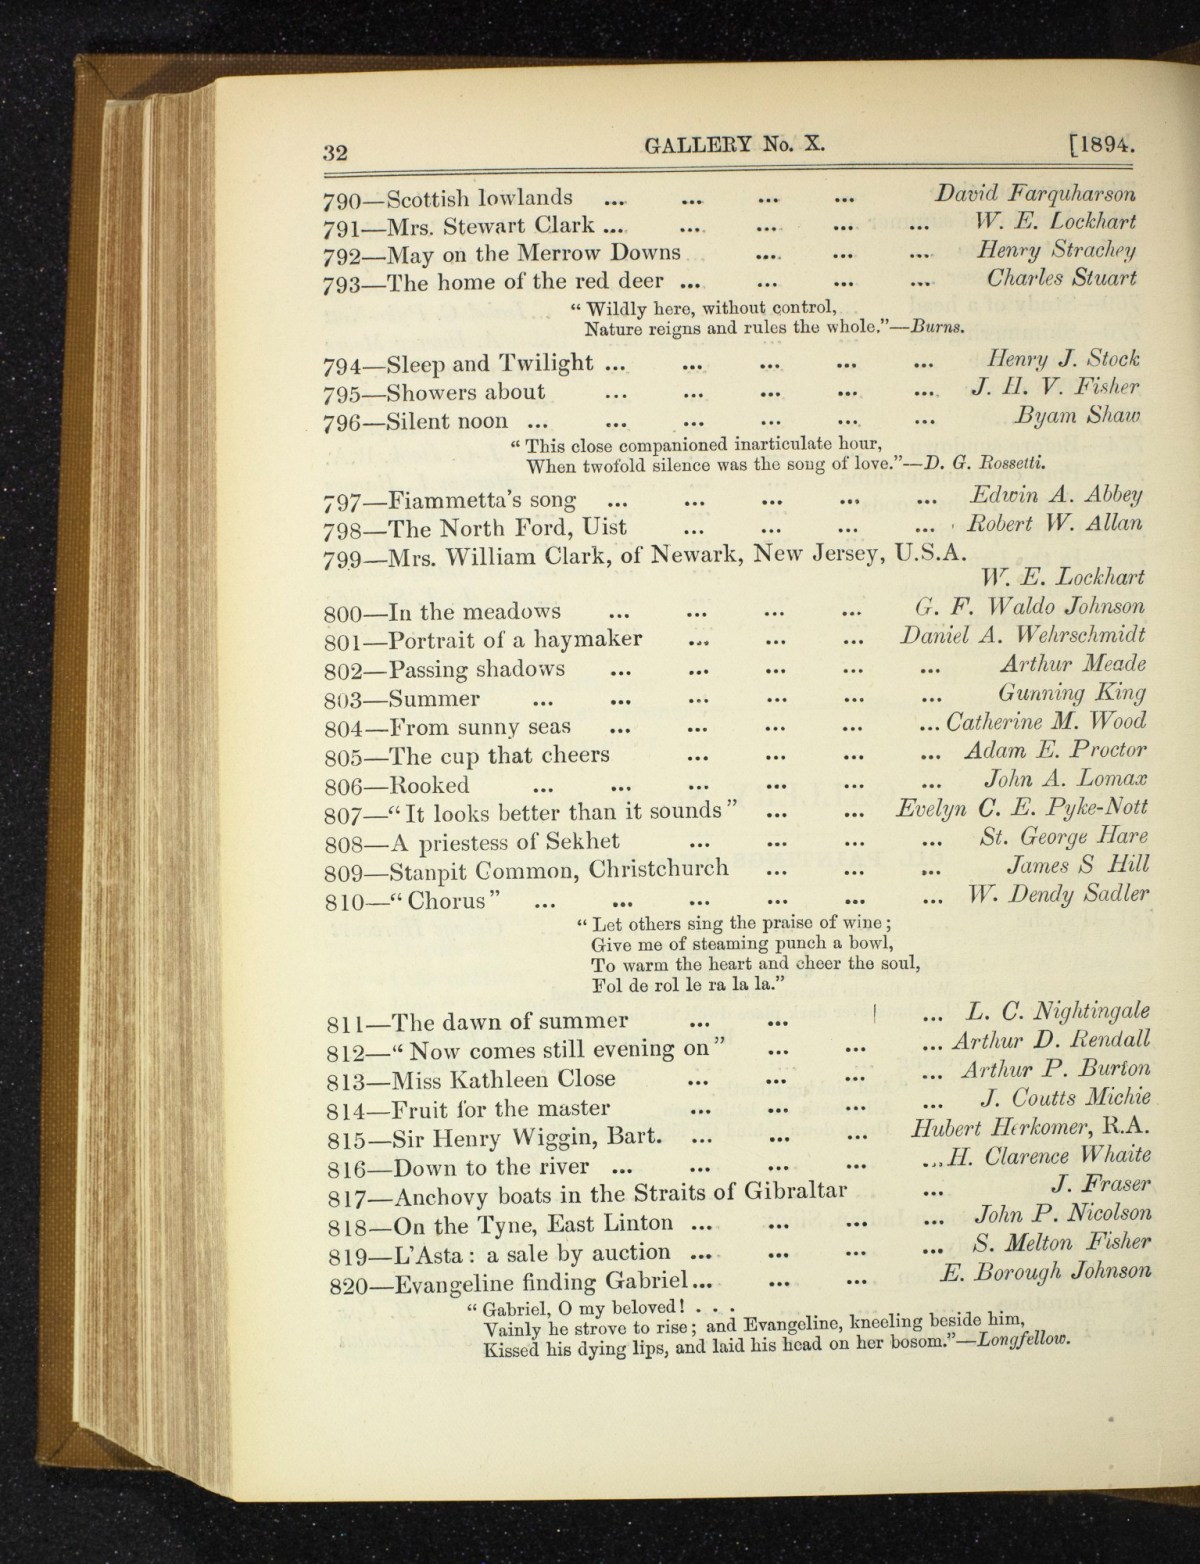 32 GALLERY No. X. [1894.
790—Scottish lowlands ... ... ... ... David Farquharson
791—Mrs. Stewart Clark ... ... ... ... ... W. E. Lockhart
792—May on the Merrow Downs ... ... ... Henry Strachey
793—The home of the red deer ... ... ... ... Charles Stuart
“ Wildly here, without control,
Nature reigns and rules the whole.”—Burns.
794—Sleep and Twilight ... ... ... ... ... Henry J. Stock
795—Showers about ... ... ... ... ... J. H. V. Fisher
796—Silent noon ... ... ... ... ... ... Byam Shaw
“ This close companioned inarticulate hour,
When twofold silence was the song of love.”—D. G. Rossetti.
797—Fiammetta's song ... ... ... ... ... Edwin A. Abbey
798—The North Ford, Uist ... ... ... ... Robert W. Allan
799—Mrs. William Clark, of Newark, New Jersey, U.S.A.
W. E. Lockhart
800—In the meadows ... ... ... ... G. F. Waldo Johnson
801—Portrait of a haymaker ... ... ... Daniel A. Wehrschmidt
802—Passing shadows ... ... ... ... ... Arthur Meade
803—Summer ... ... ... ... ... ... Gunning King
804—From sunny seas ... ... ... ... ... Catherine M. Wood
805—The cup that cheers ... ... ... ... Adam E. Proctor
806—Rooked ... ... ... ... ... ... John A. Lomax
807—“ It looks better than it sounds ” ... ... Evelyn C. E. Pyke-Nott
808—A priestess of Sekhet ... ... ... ... St. George Hare
809—Stanpit Common, Christchurch ... ... ... James S Hill
810—“ Chorus ” ... ... ... ... ... ... W. Dendy Sadler
“ Let others sing the praise of wine ;
Give me of steaming punch a bowl,
To warm the heart and cheer the soul,
Fol de rol le ra la la.”
811—The dawn of summer ... ... ... L. C. Nightingale
812—“ Now comes still evening on ” ... ... ... Arthur D. Rendall
813—Miss Kathleen Close ... ... ... ... Arthur P. Burton
814—Fruit for the master ... ... ... ... J. Coutts Michie
815—Sir Henry Wiggin, Bart. ... ... ... Hubert Herkomer, R.A.
816—Down to the river ... ... ... ... ... H. Clarence Whaite
817—Anchovy boats in the Straits of Gibraltar ... J. Fraser
818—On the Tyne, East Linton ... ... ... ... John P. Nicolson
819—L'Asta : a sale by auction ... ... ... ... S. Melton Fisher
820—Evangeline finding Gabriel ... ... ... E. Borough Johnson
“ Gabriel, O my beloved ! . . .
Vainly he strove to rise ; and Evangeline, kneeling beside him,
Kissed his dying lips, and laid his head on her bosom.”—Longfellow.